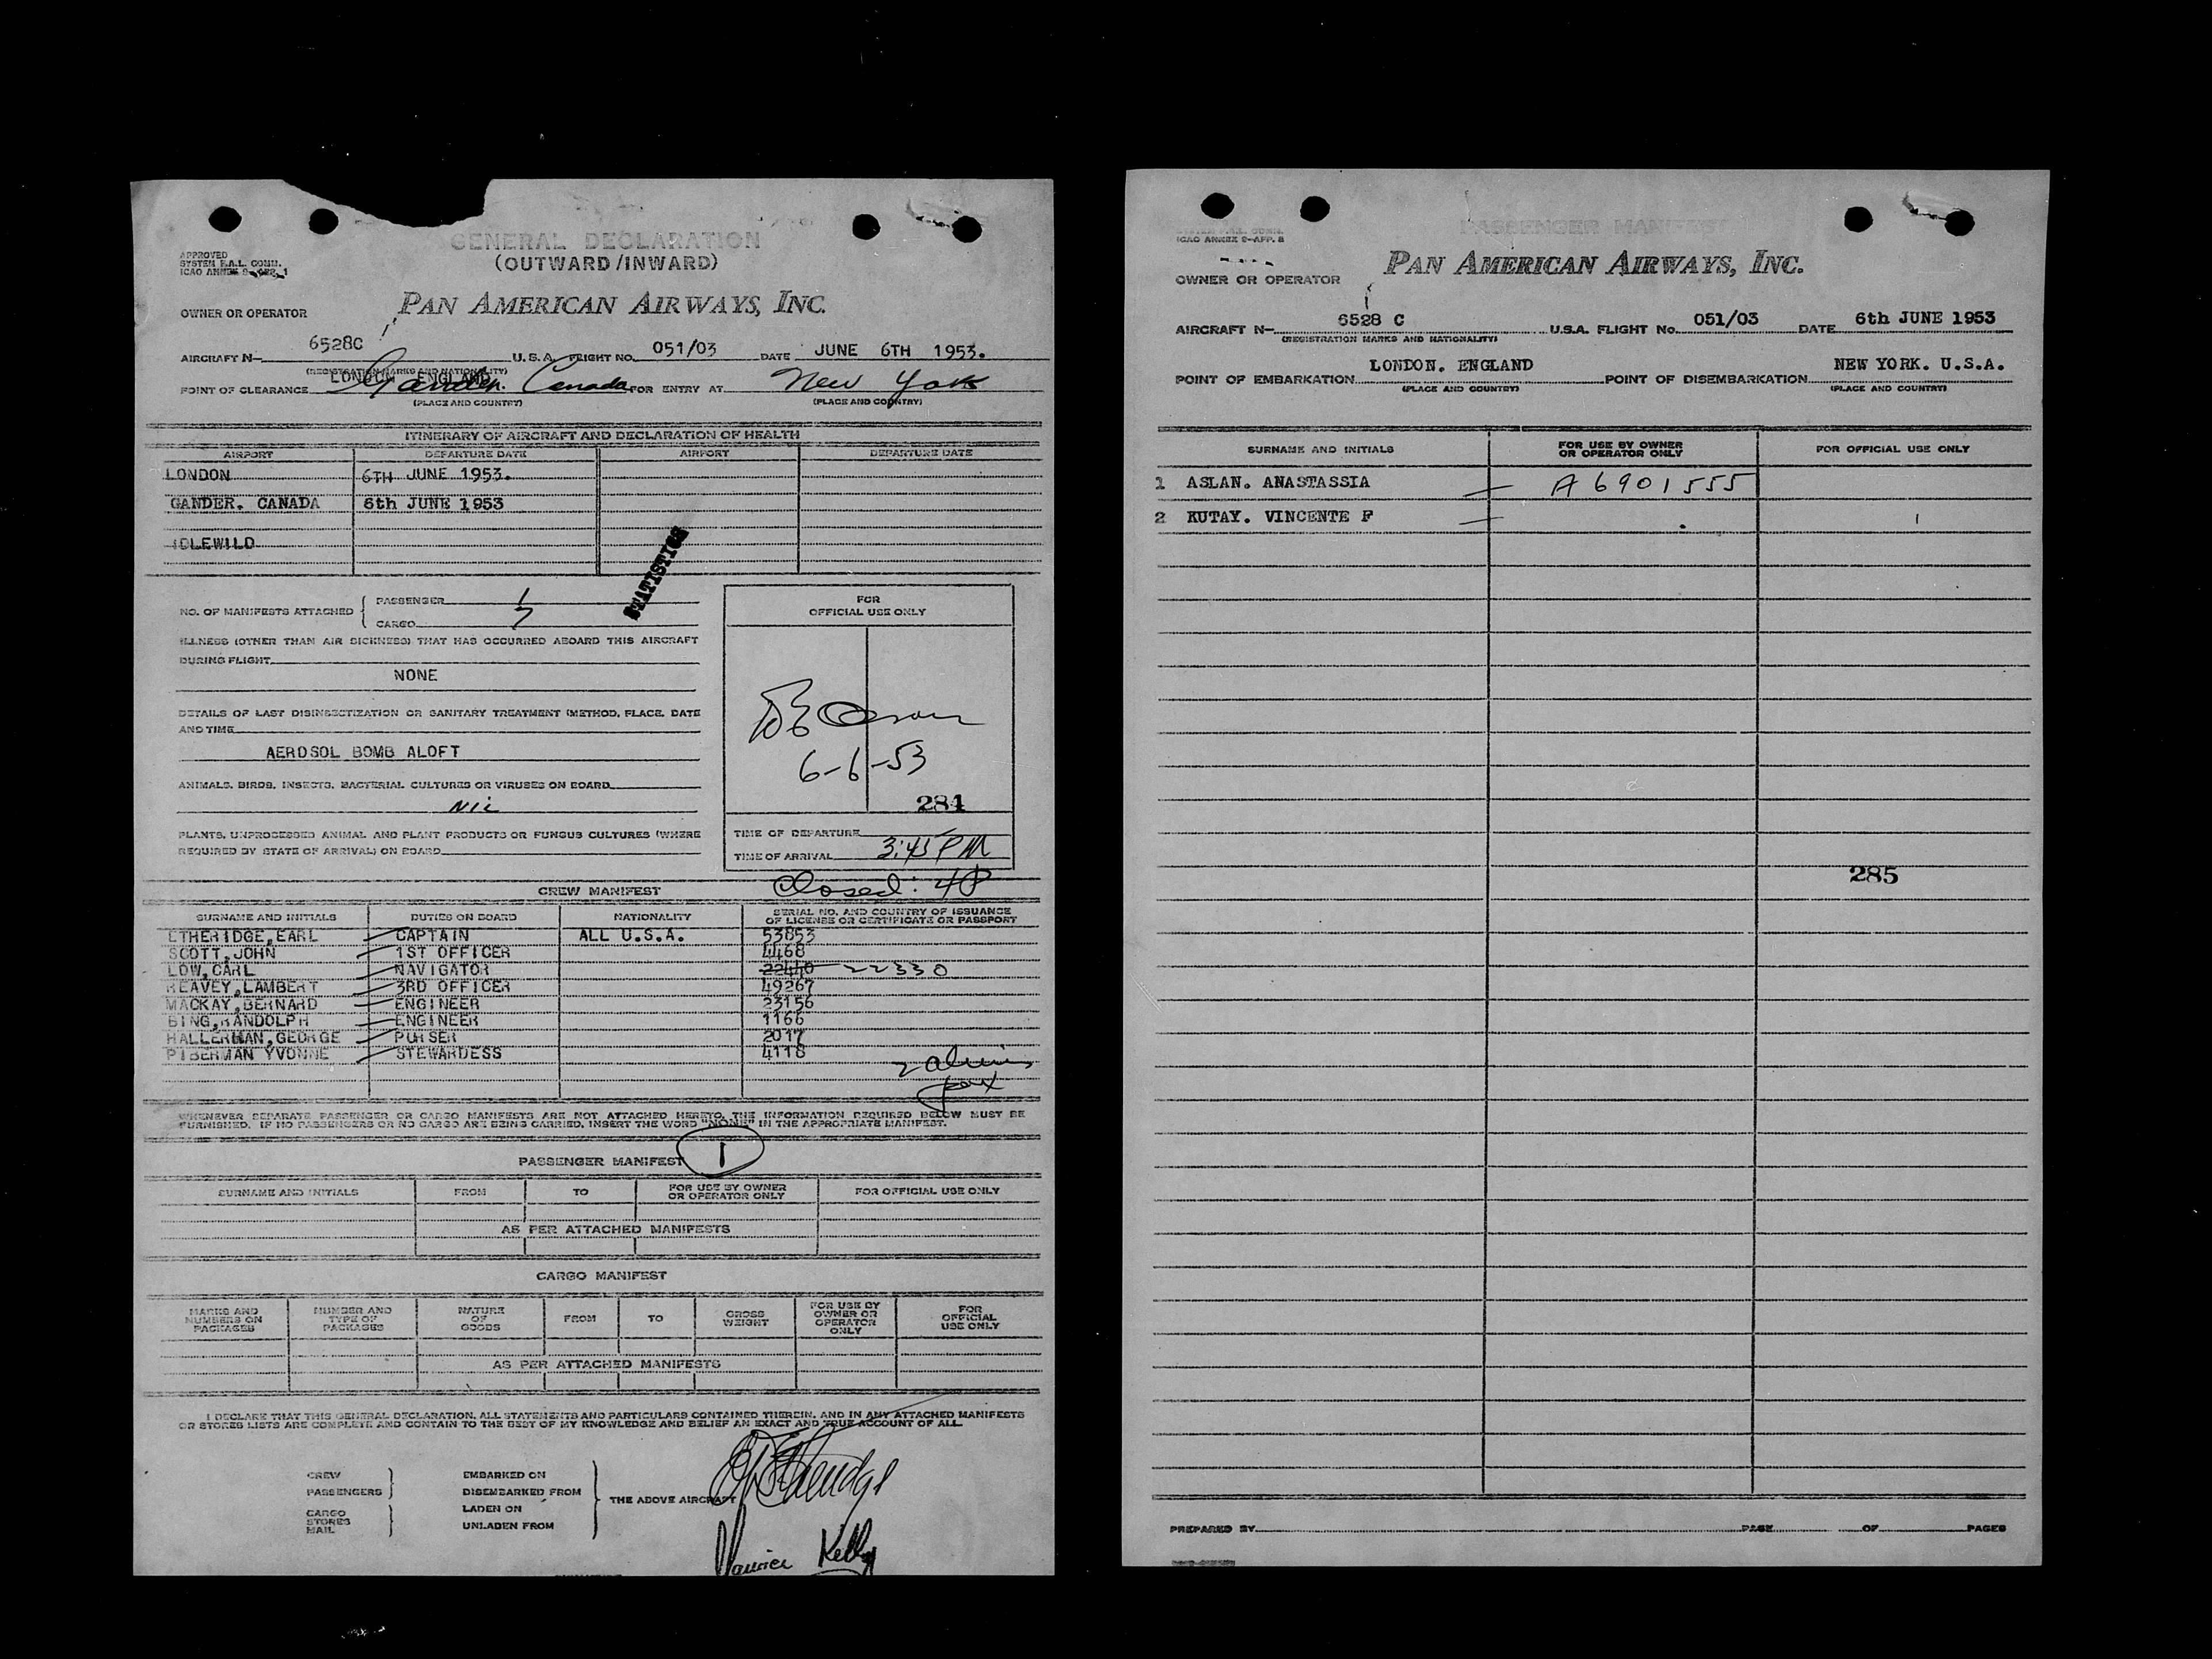 GENERAL DECLARATION
(OUTWARD/INWARD)
APPROVED
SYSTEM F.A.L. COMM.
ICAO ANNEX 9-APP. 1
OWNER OR OPERATOR PAN AMERICAN AIRWAYS, INC.
AIRCRAFT N- 6528C U.S.A. FLIGHT NO. 051/03 DATE JUNE 6TH 1953.
(REGISTRATION MARKS AND NATIONALITY)
LONDON ENGLAND
POINT OF CLEARANCE Gander. Canada FOR ENTRY AT New York
(PLACE AND COUNTRY) (PLACE AND COUNTRY)
ITINERARY OF AIRCRAFT AND DECLARATION OF HEALTH
AIRPORT DEPARTURE DATE AIRPORT DEPARTURE DATE
LONDON 6TH JUNE 1953.
GANDER. CANADA 6th JUNE 1953
IDLEWILD
STATISTICS
NO. OF MANIFESTS ATTACHED { PASSENGER 1
CARGO 7
ILLNESS (OTHER THAN AIR SICKNESS) THAT HAS OCCURRED ABOARD THIS AIRCRAFT
DURING FLIGHT
NONE
DETAILS OF LAST DISINSECTIZATION OR SANITARY TREATMENT (METHOD, PLACE, DATE
AND TIME
AEROSOL BOMB ALOFT
ANIMALS, BIRDS, INSECTS, BACTERIAL CULTURES OR VIRUSES ON BOARD
NIL
PLANTS, UNPROCESSED ANIMAL AND PLANT PRODUCTS OR FUNGUS CULTURES (WHERE
REQUIRED BY STATE OF ARRIVAL) ON BOARD
FOR
OFFICIAL USE ONLY
6-6-53
284
TIME OF DEPARTURE
TIME OF ARRIVAL 3:45 PM
Closed: 4P
CREW MANIFEST
SURNAME AND INITIALS DUTIES ON BOARD NATIONALITY SERIAL NO. AND COUNTRY OF ISSUANCE
OF LICENSE OR CERTIFICATE OR PASSPORT
ETHERIDGE,EARL CAPTAIN ALL U.S.A. 53853
SCOTT,JOHN 1ST OFFICER 4468
LOW,CARL NAVIGATOR 22440 22330
REAVEY,LAMBERT 3RD OFFICER 49267
MACKAY,BERNARD ENGINEER 23156
BING,RANDOLPH ENGINEER 1166
HALLERMAN,GEORGE PURSER 2017
PIBERMAN YVONNE STEWARDESS 4118
WHENEVER SEPARATE PASSENGER OR CARGO MANIFESTS ARE NOT ATTACHED HERETO, THE INFORMATION REQUIRED BELOW MUST BE
FURNISHED. IF NO PASSENGERS OR NO CARGO ARE BEING CARRIED, INSERT THE WORD "NONE" IN THE APPROPRIATE MANIFEST.
PASSENGER MANIFEST 1
SURNAME AND INITIALS FROM TO FOR USE BY OWNER
OR OPERATOR ONLY FOR OFFICIAL USE ONLY
AS PER ATTACHED MANIFESTS
CARGO MANIFEST
MARKS AND
NUMBERS ON
PACKAGES NUMBER AND
TYPE OF
PACKAGES NATURE
OF
GOODS FROM TO GROSS
WEIGHT FOR USE BY
OWNER OR
OPERATOR
ONLY FOR
OFFICIAL
USE ONLY
AS PER ATTACHED MANIFESTS
I DECLARE THAT THIS GENERAL DECLARATION, ALL STATEMENTS AND PARTICULARS CONTAINED THEREIN, AND IN ANY ATTACHED MANIFESTS
OR STORES LISTS ARE COMPLETE AND CONTAIN TO THE BEST OF MY KNOWLEDGE AND BELIEF AN EXACT AND TRUE ACCOUNT OF ALL.
CREW EMBARKED ON
PASSENGERS DISEMBARKED FROM
THE ABOVE AIRCRAFT
CARGO LADEN ON
STORES
MAIL UNLADEN FROM
Maurice Kelly
PASSENGER MANIFEST
SYSTEM F.A.L. COMM.
ICAO ANNEX 9-APP. 8
OWNER OR OPERATOR PAN AMERICAN AIRWAYS, INC.
AIRCRAFT N- 6528 C U.S.A. FLIGHT No. 051/03 DATE 6th JUNE 1953
(REGISTRATION MARKS AND NATIONALITY)
POINT OF EMBARKATION LONDON. ENGLAND POINT OF DISEMBARKATION NEW YORK. U.S.A.
(PLACE AND COUNTRY) (PLACE AND COUNTRY)
SURNAME AND INITIALS FOR USE BY OWNER
OR OPERATOR ONLY FOR OFFICIAL USE ONLY
1 ASLAN. ANASTASSIA A6901555
2 KUTAY. VINCENTE F
285
PREPARED BY PAGE OF PAGES